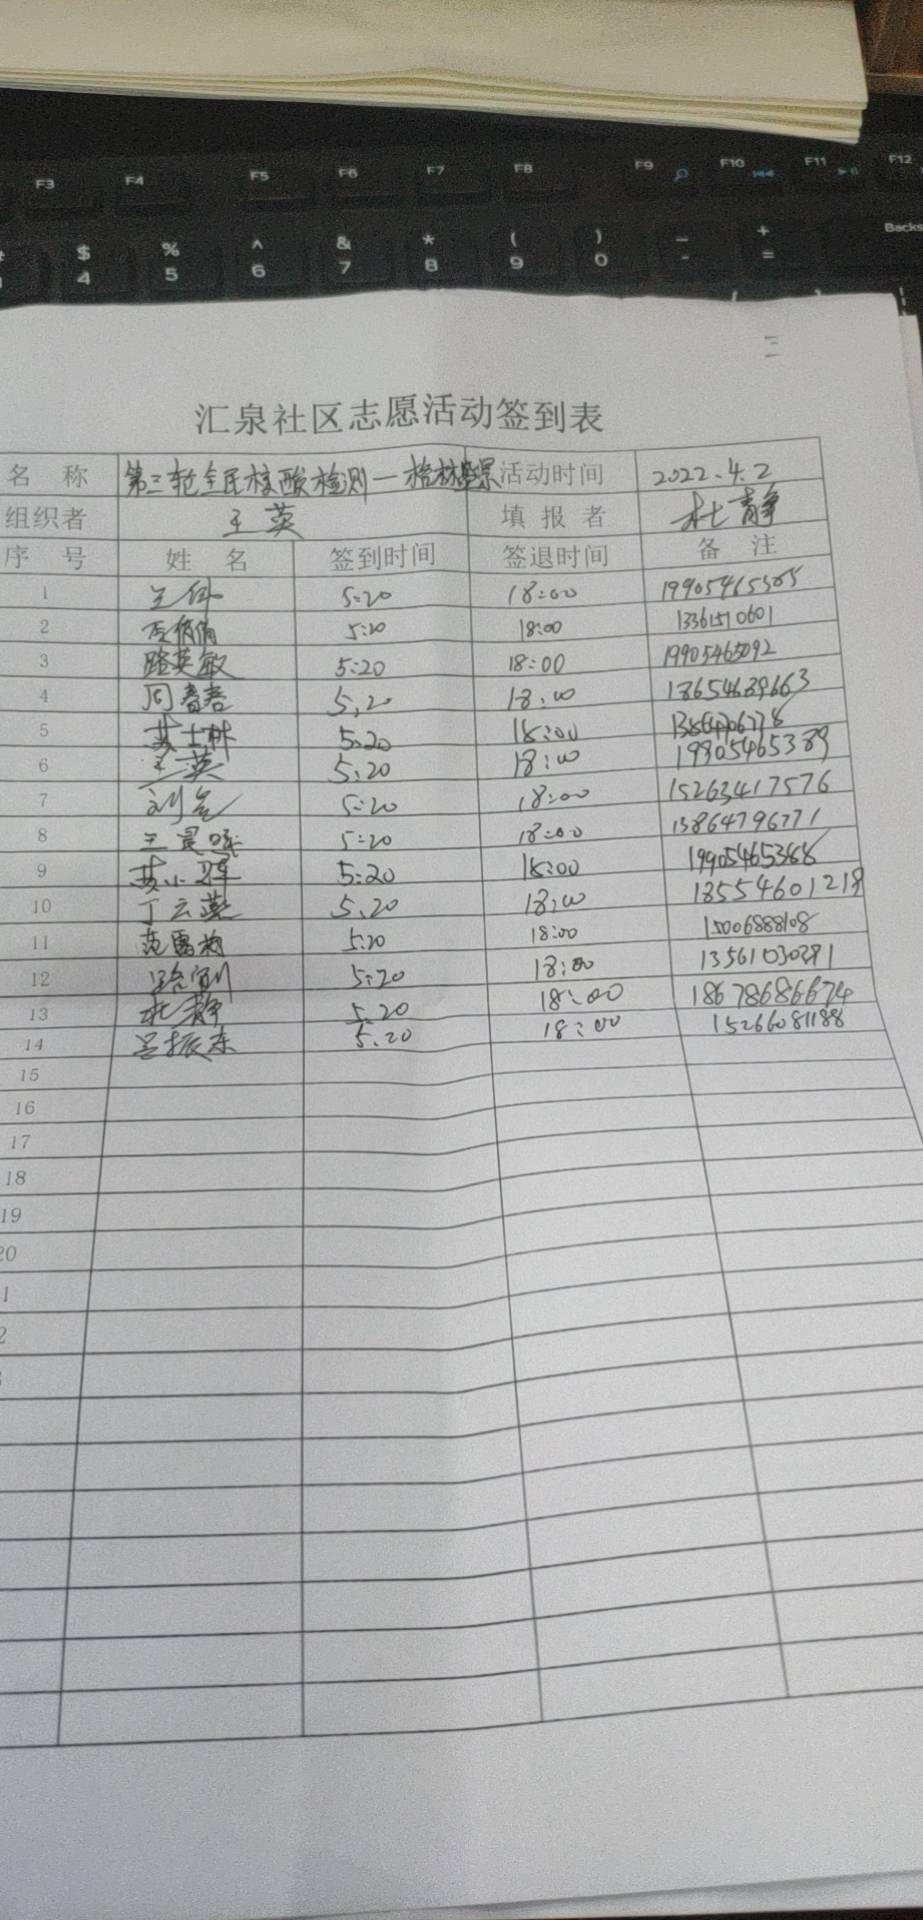 F3 F4 F5 F6 F7 F8 F9 F10 F11 F12
$ % ^ & * ( ) — + Backs
4 5 6 7 8 9 0 - =
汇泉社区志愿活动签到表
名 称 第三轮全民核酸检测一格林 景 活动时间 2022.4.2
组织者 王英 填报者 杜静
序 号 姓 名 签到时间 签退时间 备 注
1 5:20 18:00
2 5:20 18:00 13361510601
3 路英敏 5:20 18:00 19905465092
4 周春春 5,20 18:00 13654639663
5 5:20 18:00
6 王英 5:20 18:00 19905465389
7 5:20 18:00 15263417576
8 5:20 18:00 13864796771
9 5:20 18:00 19905465388
10 丁云燕 5,20 18:00 18554601218
11 5:20 18:00 15006888108
12 5:20 18:00
13 杜静 5.20 18:00 18678686674
14 吕振东 5.20 18:00 15266081188
15
16
17
18
19
20
1
2